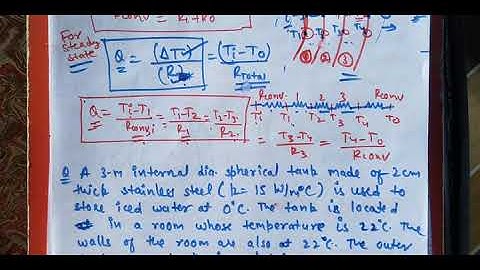 Rconv = Ri+Ro
For steady state
Q = (ΔT) / (R) = (Ti-To) / RTotal
T1 T2 T3 T4
① ② ③
Q = Ti-T1 / Rconvi = T1-T2 / R1 = T2-T3 / R2
Rconv 1 2 3 Rconv
Ti T1 T2 T3 T4 To
= T3-T4 / R3 = T4-To / Rconv
Q A 3-m internal dia. spherical tank made of 2cm
thick stainless steel (k= 15 W/m°C) is used to
store iced water at 0°C. The tank is located
in a room whose temperature is 22°C. The
walls of the room are also at 22°C. The outer